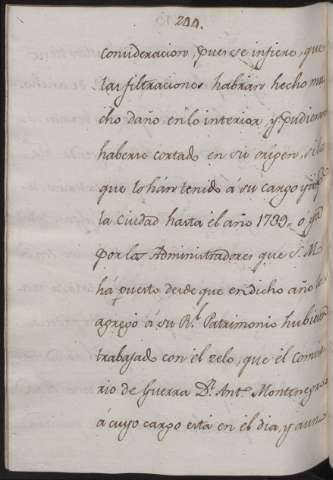 244.
consideracion, pues se infiere, que
las filtraciones habran hecho mu
cho daño en lo interior, y pudieron
haberse cortado en su origen, si los
que lo han tenido á su cargo
la Ciudad hasta el año 1799. o
por los Administradores que S. M.
há puesto desde que en dicho año se
agregó á su Rl. Patrimonio hubieran
trabajado con el zelo, que el Comisa
rio de Guerra Dn. Antº. Montenegro
á cuyo cargo está en el dia, y aun